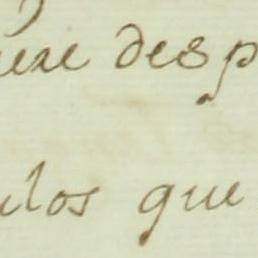 ere desp
ulos que